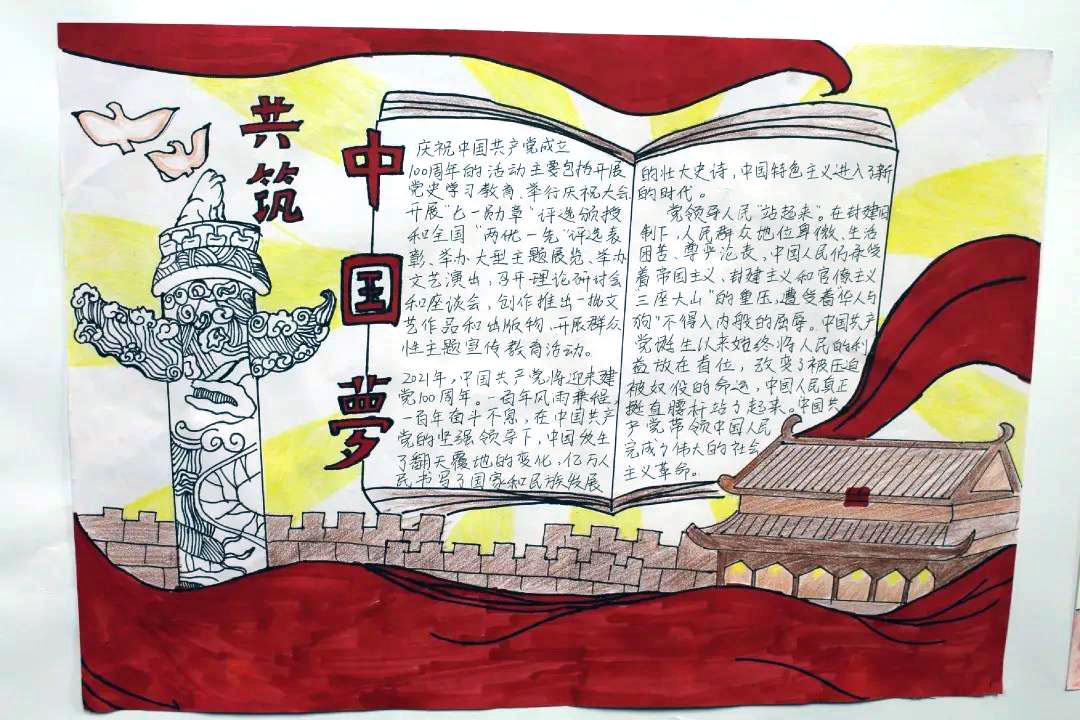 共筑
中国梦
庆祝中国共产党成立
100周年的活动主要包括开展
党史学习教育、举行庆祝大会
开展“七一勋章”评选颁授
和全国“两优一先”评选表
彰、举办大型主题展览、举办
文艺演出,召开理论研讨会
和座谈会,创作推出一批文
艺作品和出版物,开展群众
性主题宣传教育活动。
2021年,中国共产党将迎来建
党100周年。一百年风雨兼程
一百年奋斗不息,在中国共产
党的坚强领导下,中国发生
了翻天覆地的变化,亿万人
民书写了国家和民族发展
的壮大史诗,中国特色主义进入了新
的时代。
党领导人民“站起来”。在封建国
制下,人民群众地位卑微、生活
困苦、尊严沦丧,中国人民们承受
着帝国主义、封建主义和官僚主义
三座大山”的重压,遭受着华人与
狗”不得入内般的屈辱。中国共产
党诞生以来始终将人民的利
益放在首位,改变了被压迫
被奴役的命运,中国人民真正
挺直腰杆站了起来。中国共
产党带领中国人民
完成了伟大的社会
主义革命。